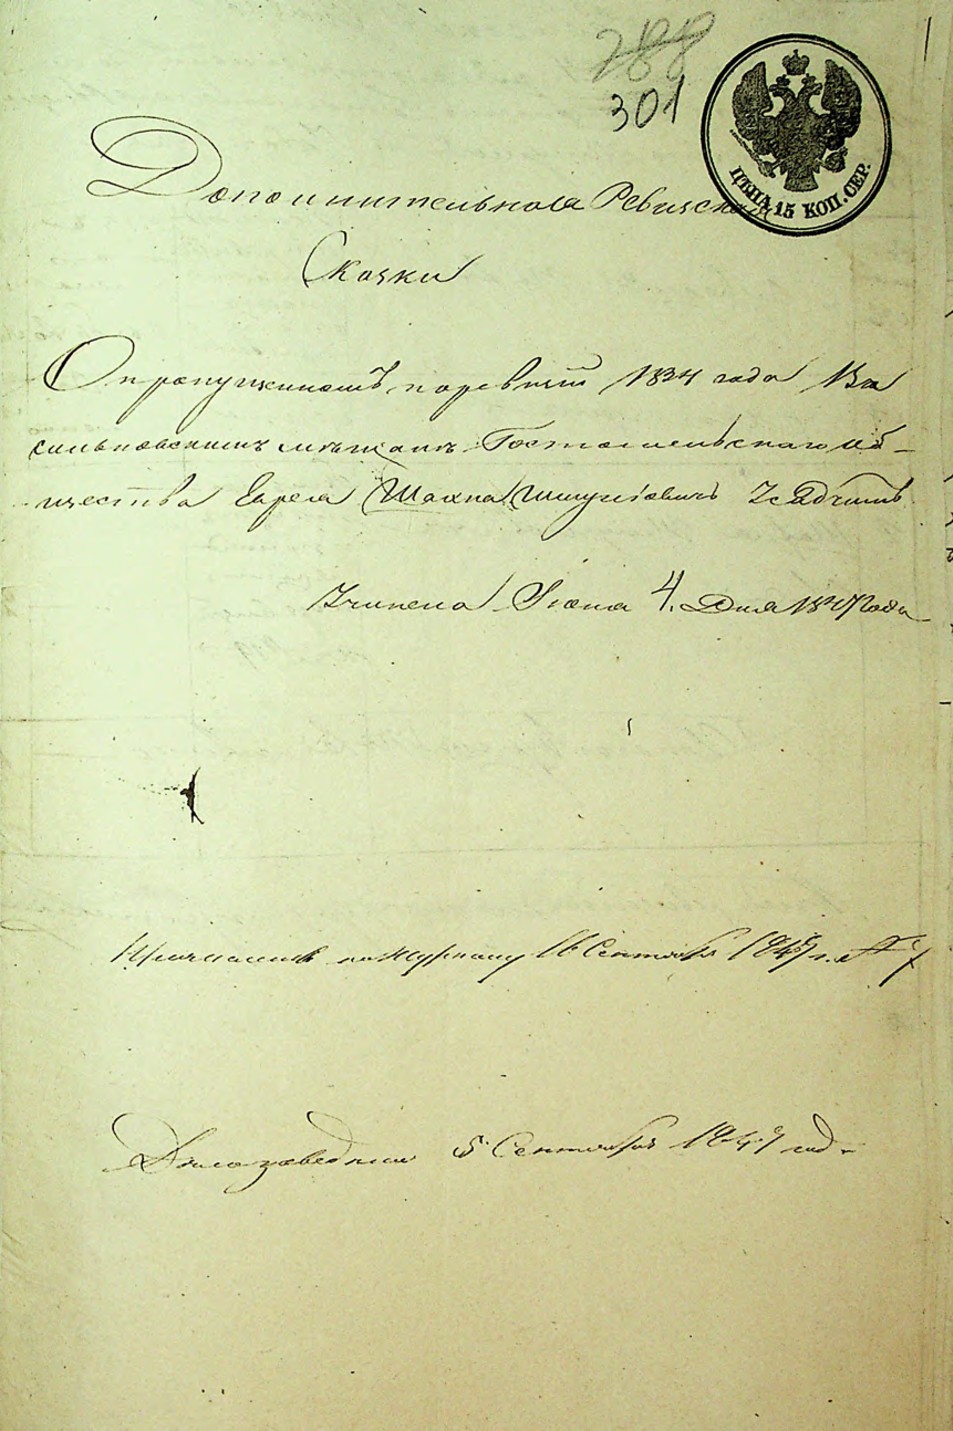 288
301
ЦѢНА 15 КОП. СЕР.
Дополнительная Ревизская
Сказки
О пропущенномъ поревизіи 1834 года Ва
сильковскимъ мѣщанъ Гостомельскаго об-
щества Еврея Шахна Шмулiовичъ
Iюня 4. Дня 1847 года
по Журналу 16 Сентября 1847 г. № 7
Дѣло заведено 5 Сентября 1847 год.